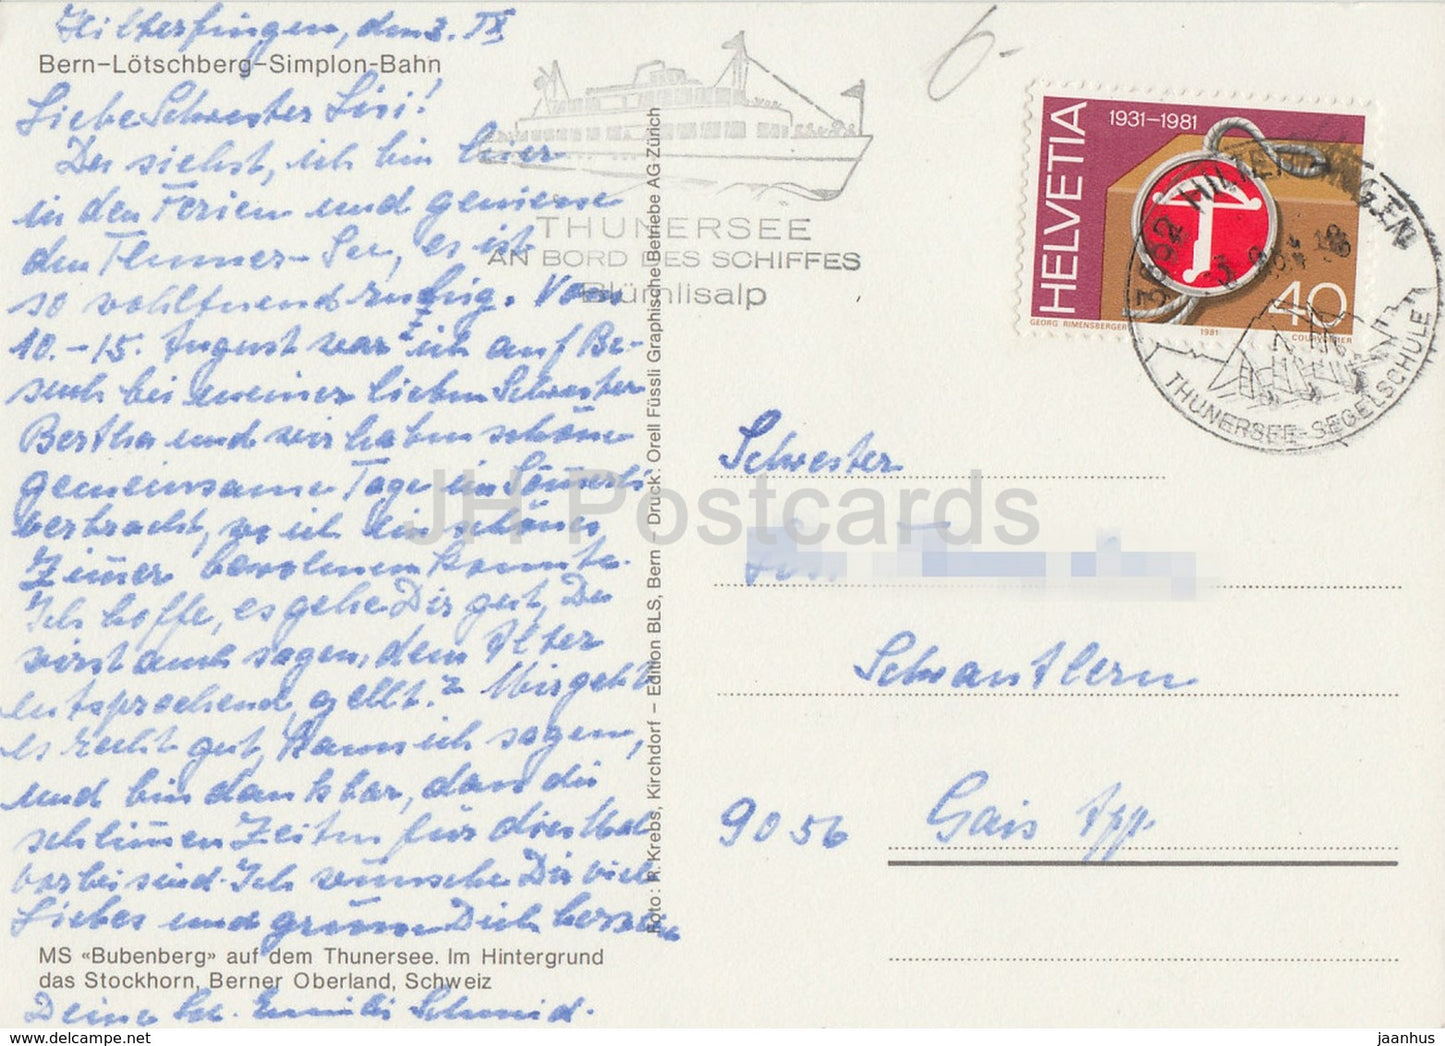 Hilterfingen, den 3. IX
Bern–Lötschberg–Simplon-Bahn
Liebe Schwester Lisi!
Du siehst, ich bin hier
in den Ferien und geniesse
den Thuner-See, es ist
so wohltuend ruhig. Vom
10.–15. August war ich auf Be-
such bei meiner lieben Schwester
Bertha und wir haben schöne
gemeinsame Tage in
verbracht, wo ich ein schönes
Zimer bewohnen konnte.
Ich hoffe, es gehe Dir gut, Du
wirst auch sagen, dem Alter
entsprechend, gellt? Mir geht
es recht gut, kann ich sagen,
und bin dankbar, dass die
schlimen Zeiten für dies Mal
vorbei sind. Ich wünsche Dir viel
Liebes und grüsse Dich herzlich
MS «Bubenberg» auf dem Thunersee. Im Hintergrund
das Stockhorn, Berner Oberland, Schweiz
Deine Schmid.
Foto: R. Krebs, Kirchdorf – Edition BLS, Bern – Druck: Orell Füssli Graphische Betriebe AG Zürich
THUNERSEE
AN BORD DES SCHIFFES
Blümlisalp
6.-
HELVETIA
1931–1981
40
GEORG RIMENSBERGER
1981
COURVOISIER
3652 HILTERFINGEN
THUNERSEE-SEGELSCHULE
Schwester
Schwantlern
9056 Gais App.
JH Postcards
jaanhus